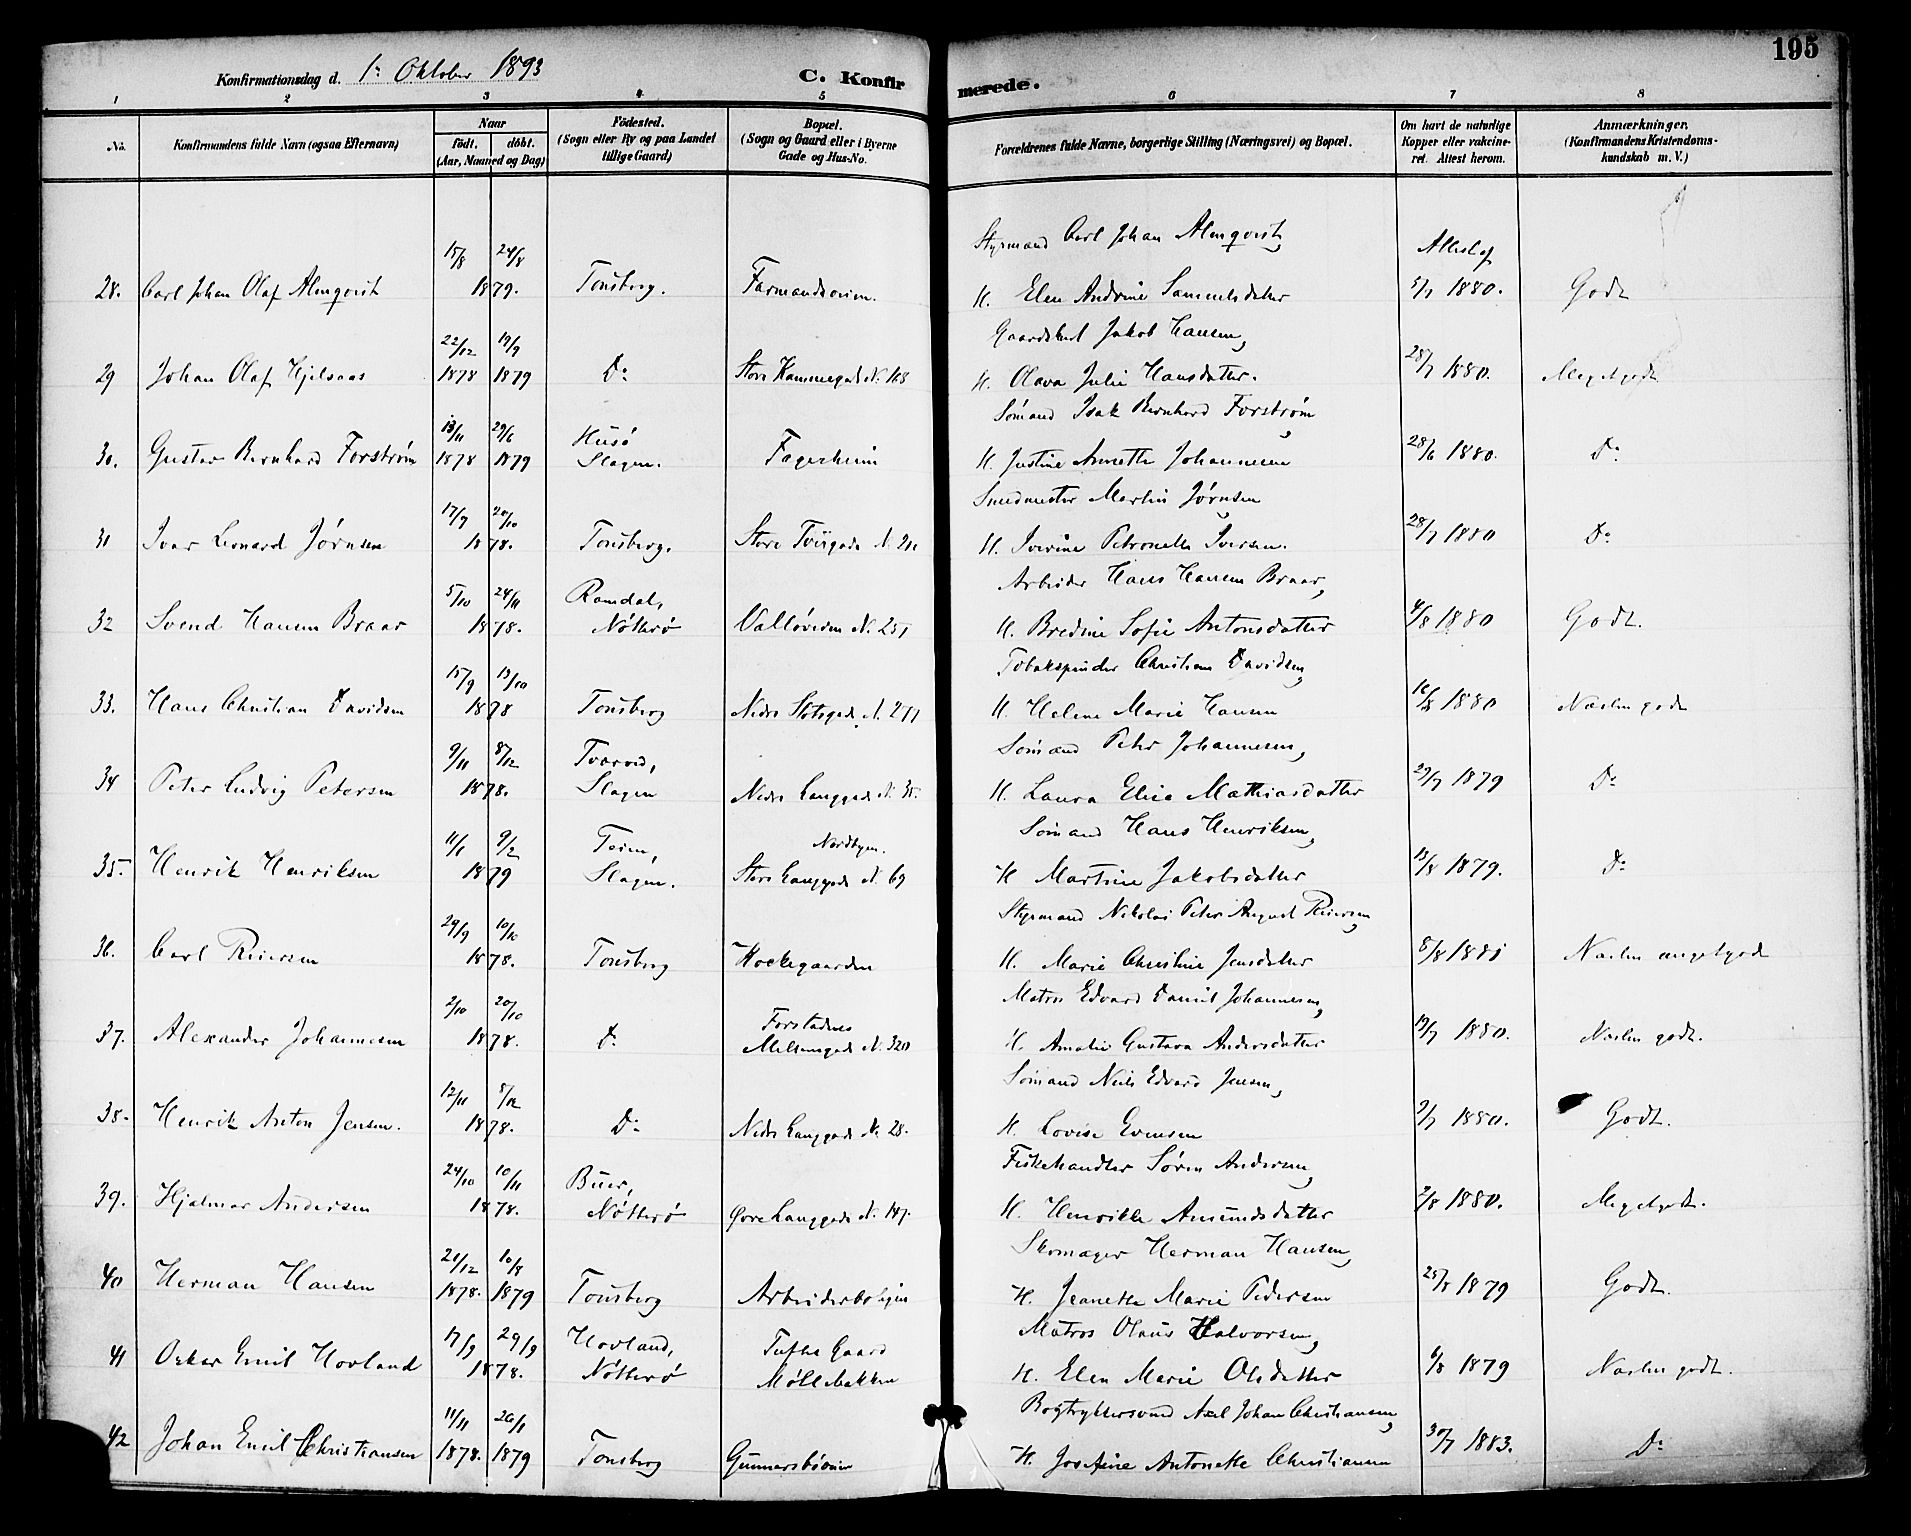 195
Konfirmationsdag d. 1ª Oktober 1893
C. Konfirmerede.
1 2 3 4 5 6 7 8
No.
Konfirmandens fulde Navn (ogsaa Efternavn)
Naar
födt. döbt.
(Aar, Maaned og Dag)
Födested.
(Sogn eller By og paa Landet
tillige Gaard)
Bopæl.
(Sogn og Gaard eller i Byerne
Gade og Hus-No.
Forældrenes fulde Navne, borgerlige Stilling (Næringsvei) og Bopæl.
Om havt de naturlige
Kopper eller vakcine-
ret. Attest herom.
Anmærkninger.
(Konfirmandens Kristendoms-
kundskab m. V.)
15/8 24/8 Styrmand Carl Johan Almqvist, Attest af
28. Carl Johan Olaf Almqvist 1879. Tönsberg. Farmandsveien. H. Elen Andrine Samuelsdatter 5/7 1880. Godt
22/12 19/9 Gaardskarl Jakob Hansen,
29 Johan Olaf Hjelsaas 1878 1879 Do Store Kammegade N. 168 H. Olava Julie Hansdatter. 28/7 1880. Megetgodt
13/11 29/6 Husö Sömand Isak Bernhard Forström,
30. Gustav Bernhard Forström 1878 1879 Slagen. Fagerheim H. Justine Annette Johannesen 28/6 1880. Do
17/9 20/10 Smedmester Martin Jörnsen
31 Ivar Leonard Jörnsen 1878. Tönsberg. Store N. H. Iverine Petronelle Iversen. 28/7 1880 Do
5/10 24/11 Ramdal, Arbeider Hans Hansen Braar,
32 Svend Hansen Braar 1878. Nötterö Vallöveien N. 251 H. Bredine Sofie Antonsdatter 4/8 1880 Godt.
15/9 13/10 Tobakspinder Christian Davidsen,
33. Hans Christian Davidsen 1878 Tönsberg Nedre Slotsgade N. 277 H. Helene Marie Hansen 16/8 1880 Næsten godt
9/11 8/12 Sömand Peter Johannesen,
34 Peter Ludvig Petersen 1878. Slagen Nedre Langgade N. 35. H. Laura Elise Mathiasdatter 29/7 1879 Do
11/1 9/2 Teien, Nordbyen. Sömand Hans Henriksen,
35. Henrik Henriksen 1879 Slagen. Store Langgade N. 69 H Martine Jakobsdatter 13/8 1879. Do
29/9 10/10 Styrmand Nikolai Peter August Reiersen,
36. Carl Reiersen 1878. Tönsberg Kockegaarden H. Marie Christine Jensdatter 8/8 1881 Næsten megetgodt
2/10 20/10 Forstadnes Matros Edvard Daniel Johannesen,
37. Alexander Johannesen 1878. Do N. 320 H. Amalie Gustava Andersdatter 19/7 1880. Næsten godt.
12/11 8/12 Sömand Niels Edvard Jensen,
38. Henrik Anton Jensen. 1878. Do Nedre Langgade N. 28. H. Lovise Evensen 9/7 1880. Godt.
24/10 10/11 Buer, Fiskehandler Sören Andersen,
39. Hjalmar Andersen 1878. Nötterö Övre Langgade N. 147. H. Henrikke Amundsdatter 2/8 1880. Megetgodt.
21/12 10/8 Skomager Herman Hansen,
40 Herman Hansen 1878. 1879 Tönsberg Arbeiderboligen H. Jeanette Marie Pedersen 25/8 1879 Godt.
17/9 29/9 Hovland, Tufte Gaard Matros Olaus Halvorsen,
41 Oskar Emil Hovland 1878. Nötterö Möllebakken H. Elen Marie Olsdatter 6/8 1879 Næsten godt.
11/11 26/1 Bogtrykkersvend Axel Johan Christiansen,
42 Johan Emil Christiansen 1878. 1879 Tönsberg Gunnarsböveien H. Josefine Antonette Christiansen 30/7 1883. Do